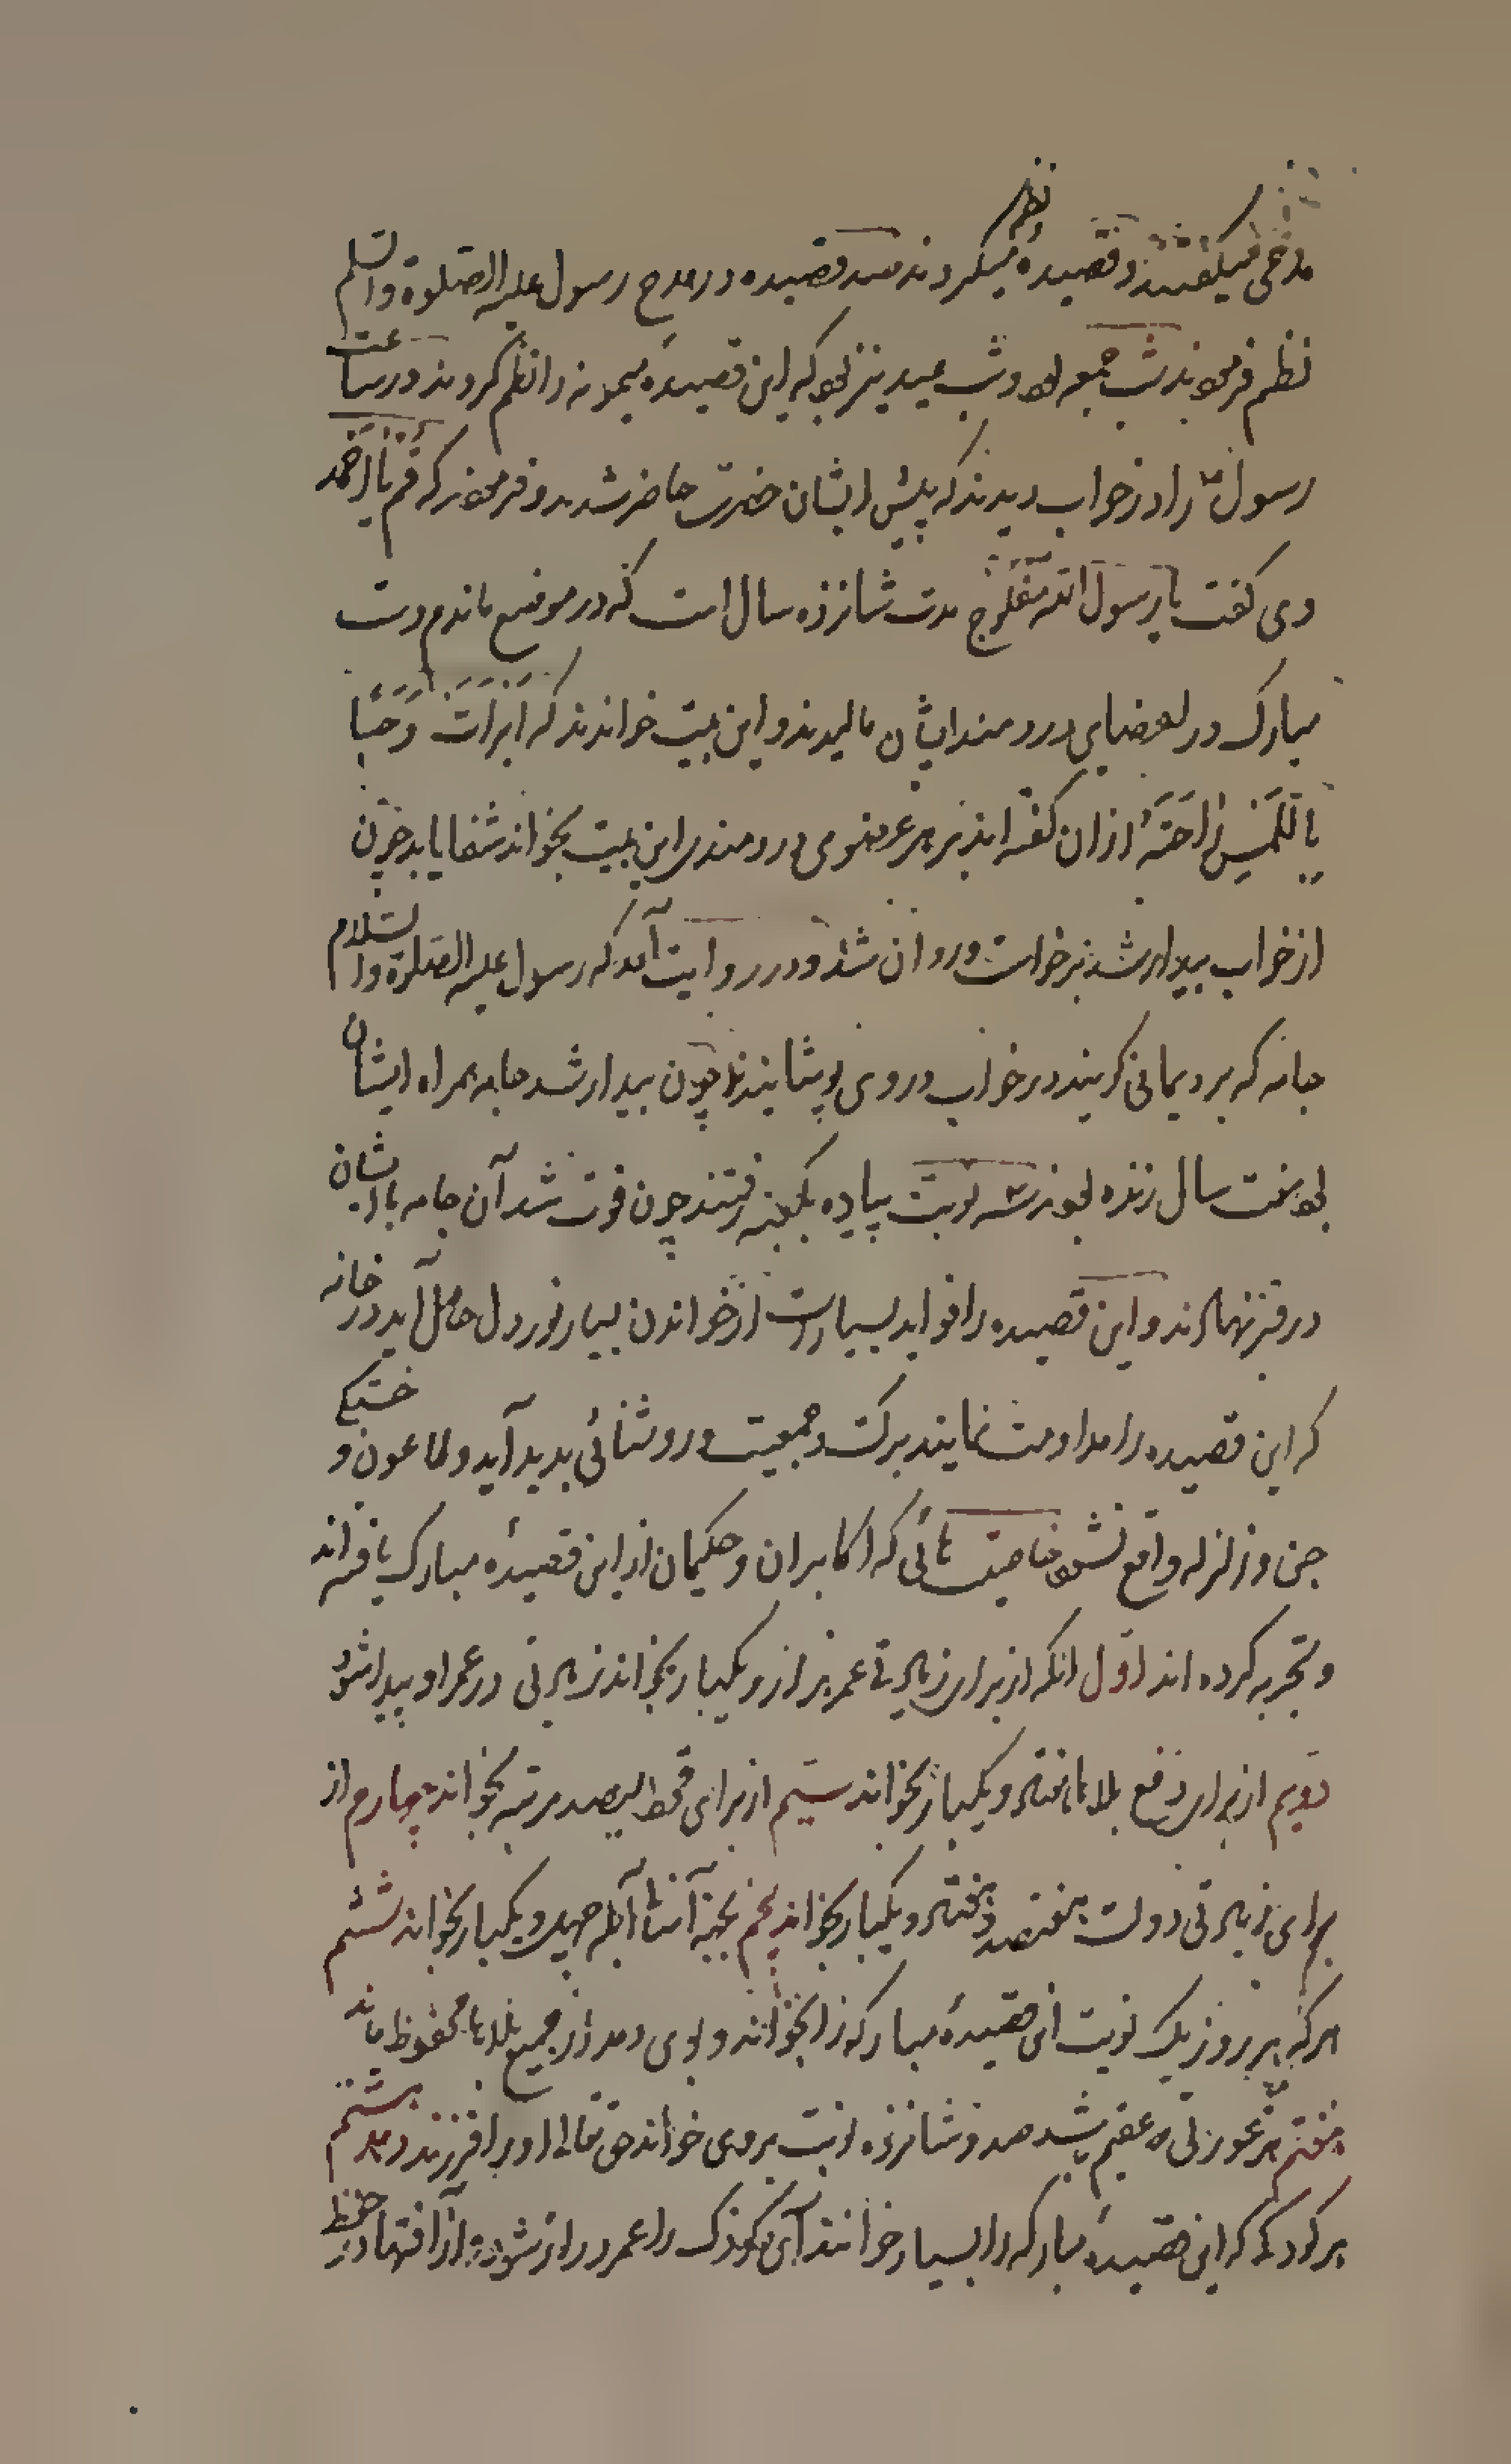 مدحی میگفتند و قصیده نظم میکردند سه قصیده در مدح رسول علیه الصلوة والسلم
نظم فرمودند شب جمعه بود و شب عید نیز بود که این قصیدهٔ میمونه را نظم کردند در ساعت
رسول را در خواب دیدند که پیش ایشان حضرت حاضر شدند و فرمودند که قم یا احمد
وی گفت یا رسول الله مفلوج مدت شانزده سال است که در موضع ماندم دست
مبارک در اعضای دردمند ایشان مالیدند و این بیت خواندند که ابرأت وصبا
باللمس راحته ازان گفته اند بر هر عضوی دردمندی این بیت بخواند شفا یابد چون
از خواب بیدار شد برخواست و روان شد و در روایت آمد که رسول علیه الصلوة والسلام
جامه که برد یمانی گویند در خواب در وی پوشانیدند چون بیدار شد جامه همراه ایشان
بود هفت سال زنده بودند سه نوبت پیاده بکعبه رفتند چون فوت شد آن جامه با ایشان
در قبر نهادند و این قصیده را فواید بسیارست از خواندن بسیار نور دل حاصل آید در خانه
که این قصیده را مداومت نمایند برکت و جمعیت و روشنائی بدید آید و طاعون و خستگی
جن و زلزله واقع نشود خاصیت هائی که اکابران و حکیمان از این قصیدهٔ مبارک یافته اند
و تجربه کرده اند اول انکه از برای زیادتی عمر هزار و یکبار بخواند زیادتی در عمر او پیدا شود
دویم از برای دفع بلاها هفتاد و یکبار بخواند سیم از برای قحط سیصد مرتبه بخواند چهارم از
برای زیادتی دولت هفتصد و هفتاد و یکبار بخواند پنجم بجهة آسانی آبله چهل و یکبار بخواند ششم
هر که هر روز یک نوبت این قصیدهٔ مبارکه را بخواند و بوی دمد از جمیع بلاها محفوظ ماند
هفتم هر عورتی که عقیم باشد صد و شانزده نوبت بر وی خواند حق تعالی او را فرزند دهد هشتم
هر کودکی که این قصیدهٔ مبارکه را بسیار خوانند آن کودک را عمر دراز شود و از آفتها در حفظ